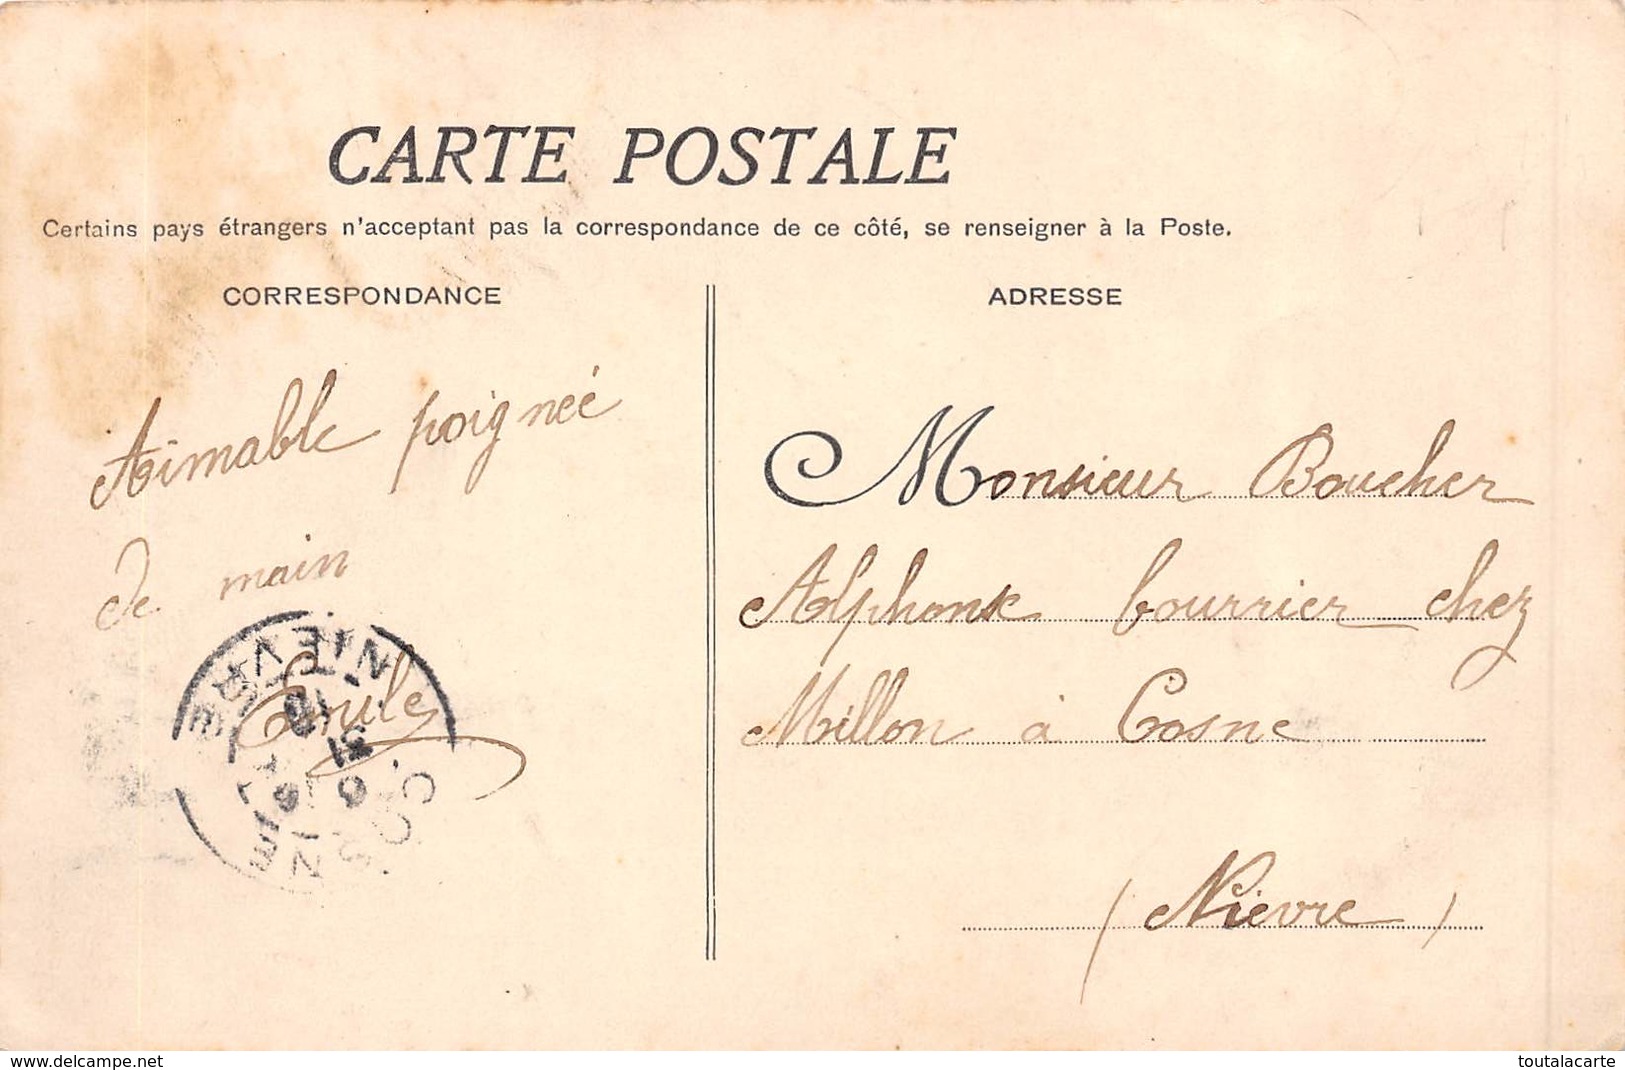 CARTE POSTALE
Certains pays étrangers n'acceptent pas la correspondance de ce côté, se renseigner à la Poste.
CORRESPONDANCE
Aimable poignée
de main
NIEVRE
COSNE
ADRESSE
Monsieur Boucher
Alphonse bourrier chez
Millon à Cosne
(Nièvre)
All-in-1 www.delcampe.net
toutalacarte